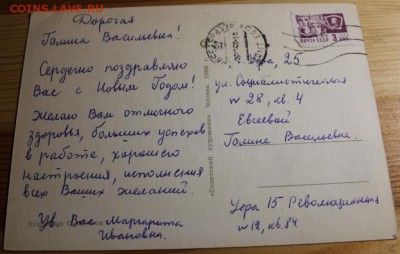 COINS.LAVE.RU
Дорогая
Галина Васильевна!
Сердечно поздравляю
Вас с Новым Годом!
Желаю Вам отличного
здоровья, больших успехов
в работе, хорошего
настроения, исполнения
всех Ваших желаний.
Ув. Вас Маргарита
Ивановна.
ПОЧТА СССР
Уфа, 25
ул. Социалистическая
н 28, кв. 4
Евсеевой
Галине Васильевне.
Уфа 15 Революционная
н 12, кв. 84
«Советский художник». Москва 1969 г.